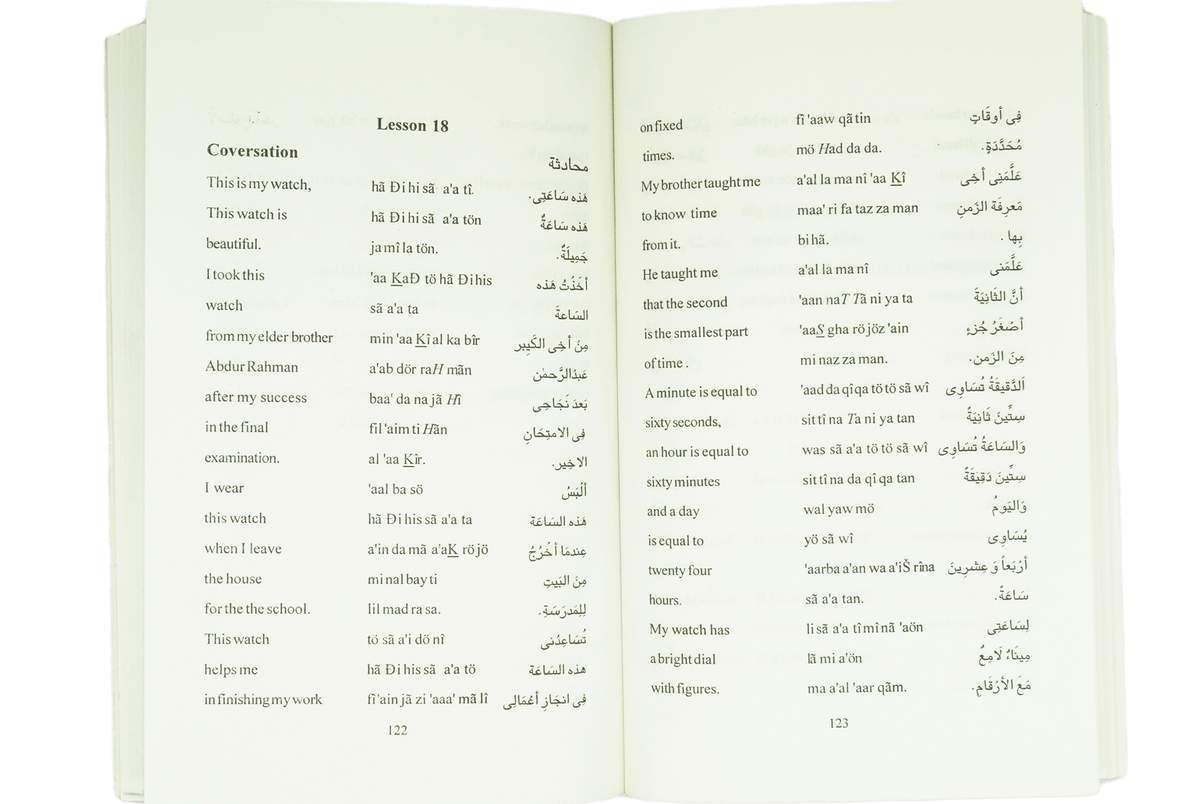 Lesson 18
Coversation محادثة
This is my watch, hã Đi hi sã a'a tî. هٰذه سَاعَتِى.
This watch is hã Đi hi sã a'a tön هٰذه سَاعَةٌ
beautiful. ja mî la tön. جَمِيلَةٌ.
I took this 'aa KaĐ tö hã Đi his أخَذْتُ هٰذه
watch sã a'a ta السَاعةَ
from my elder brother min 'aa Kî al ka bîr مِنْ أخِى الكَبِير
Abdur Rahman a'ab dör raH mãn عَبدُالرَّحمٰن
after my success baa' da na jã Hî بَعدَ نَجَاحِى
in the final fil 'aim ti Hãn فِى الامتِحَانِ
examination. al 'aa Kîr. الاخِير.
I wear 'aal ba sö ألْبَسُ
this watch hã Đi his sã a'a ta هٰذه السَاعَة
when I leave a'in da mã a'aK rö jö عِندمَا أخْرُجُ
the house mi nal bay ti مِنَ البَيتِ
for the the school. lil mad ra sa. لِلمَدرَسَةِ.
This watch tö sã a'i dö nî تُسَاعِدُنى
helps me hã Đi his sã a'a tö هٰذه السَاعَة
in finishing my work fî 'ain jã zi 'aaa' mã lî فِى انجَازِ أعْمَالِى
122
on fixed fî 'aaw qã tin فِى أوقَاتٍ
times. mö Had da da. مُحَدَّدَةٍ.
My brother taught me a'al la ma nî 'aa Kî عَلَّمَنِى أخِى
to know time maa' ri fa taz za man مَعرِفَة الزَمنِ
from it. bi hã. بِها .
He taught me a'al la ma nî عَلَّمَنى
that the second 'aan naT Tã ni ya ta أنَّ الثَانِيَةَ
is the smallest part 'aaS gha rö jöz 'ain أصْغَرُ جُزءٍ
of time . mi naz za man. مِنَ الزَمن.
A minute is equal to 'aad da qî qa tö tö sã wî اَلدَّقِيقَةُ تُسَاوِى
sixty seconds, sit tî na Ta ni ya tan سِتِّينَ ثَانِيَةً
an hour is equal to was sã a'a tö tö sã wî وَالسَاعَةُ تُسَاوِى
sixty minutes sit tî na da qî qa tan سِتِّينَ دَقِيقَةً
and a day wal yaw mö وَاليَومُ
is equal to yö sã wî يُسَاوِى
twenty four 'aarba a'an wa a'iŠ rîna أرْبَعاً وَ عِشرِينَ
hours. sã a'a tan. سَاعَةً.
My watch has li sã a'a tî mî nã 'aön لِسَاعَتِى
a bright dial lã mi a'ön مِينَاءٌ لَامِعٌ
with figures. ma a'al 'aar qãm. مَعَ الأرْقَام.
123